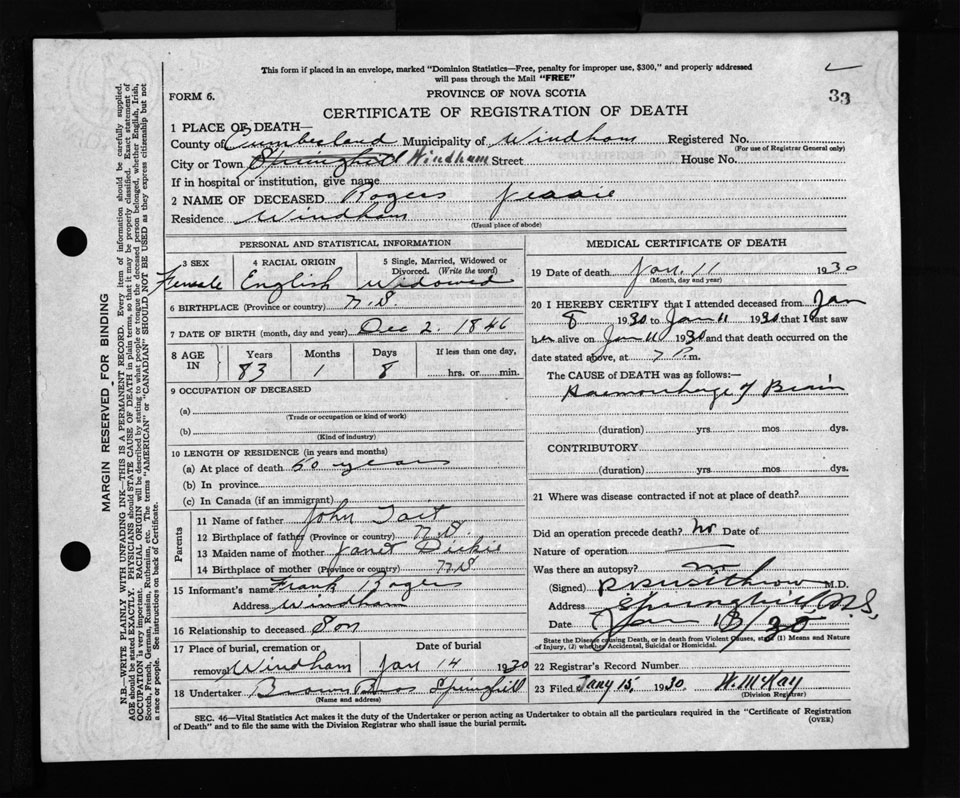 This form if placed in an envelope, marked "Dominion Statistics—Free, penalty for improper use, $300," and properly addressed
will pass through the Mail "FREE"
FORM 6.
PROVINCE OF NOVA SCOTIA
33
CERTIFICATE OF REGISTRATION OF DEATH
1 PLACE OF DEATH—
County of Cumberland Municipality of Windham Registered No.
(For use of Registrar General only)
City or Town Springhill Windham Street House No.
If in hospital or institution, give name
2 NAME OF DECEASED Rogers Jessie
Residence Windham
(Usual place of abode)
PERSONAL AND STATISTICAL INFORMATION
3 SEX 4 RACIAL ORIGIN 5 Single, Married, Widowed or Divorced. (Write the word)
Female English Widowed
6 BIRTHPLACE (Province or country) N.S.
7 DATE OF BIRTH (month, day and year) Dec 2. 1846
8 AGE IN Years Months Days If less than one day,
83 1 8 hrs. or min.
9 OCCUPATION OF DECEASED
(a)
(Trade or occupation or kind of work)
(b)
(Kind of industry)
10 LENGTH OF RESIDENCE (in years and months)
(a) At place of death 60 years
(b) In province
(c) In Canada (if an immigrant)
Parents
11 Name of father John Tait
12 Birthplace of father (Province or country) N.S.
13 Maiden name of mother Janet Dickie
14 Birthplace of mother (Province or country) N.S
15 Informant's name Frank Rogers
Address Windham
16 Relationship to deceased Son
17 Place of burial, cremation or Date of burial
removal Windham Jan 14 1930
18 Undertaker Brown Bros Springhill
(Name and address)
MEDICAL CERTIFICATE OF DEATH
19 Date of death Jan. 11 1930
(Month, day and year)
20 I HEREBY CERTIFY that I attended deceased from Jan
8 1930 to Jan 11 1930 that I last saw
her alive on Jan 11 1930 and that death occurred on the
date stated above, at 7 P.m.
The CAUSE of DEATH was as follows:—
Haemorrhage of Brain
(duration) yrs mos dys.
CONTRIBUTORY
(duration) yrs. mos dys.
21 Where was disease contracted if not at place of death?
Did an operation precede death? no Date of
Nature of operation
Was there an autopsy? no
(Signed) M.D.
Address Springhill N.S.
Date Jan 13/30
State the Disease causing Death, or in death from Violent Causes, state (1) Means and Nature
of Injury, (2) whether Accidental, Suicidal or Homicidal.
22 Registrar's Record Number
23 Filed Jany 15, 1930 W. McKay
(Division Registrar)
SEC. 46—Vital Statistics Act makes it the duty of the Undertaker or person acting as Undertaker to obtain all the particulars required in the "Certificate of Registration
of Death" and to file the same with the Division Registrar who shall issue the burial permit.
(OVER)
MARGIN RESERVED FOR BINDING
N.B.—WRITE PLAINLY WITH UNFADING INK—THIS IS A PERMANENT RECORD. Every item of information should be carefully supplied.
AGE should be stated EXACTLY. PHYSICIANS should STATE CAUSE OF DEATH in plain terms, so that it may be properly classified. Exact statement of
OCCUPATION is very important. RACIAL ORIGIN will be described by stating to what people or tongue the deceased person belonged, whether English, Irish,
Scotch, French, German, Russian, Ruthenian, etc. The terms "AMERICAN" or "CANADIAN" SHOULD NOT BE USED as they express citizenship but not
a race or people. See instructions on back of Certificate.